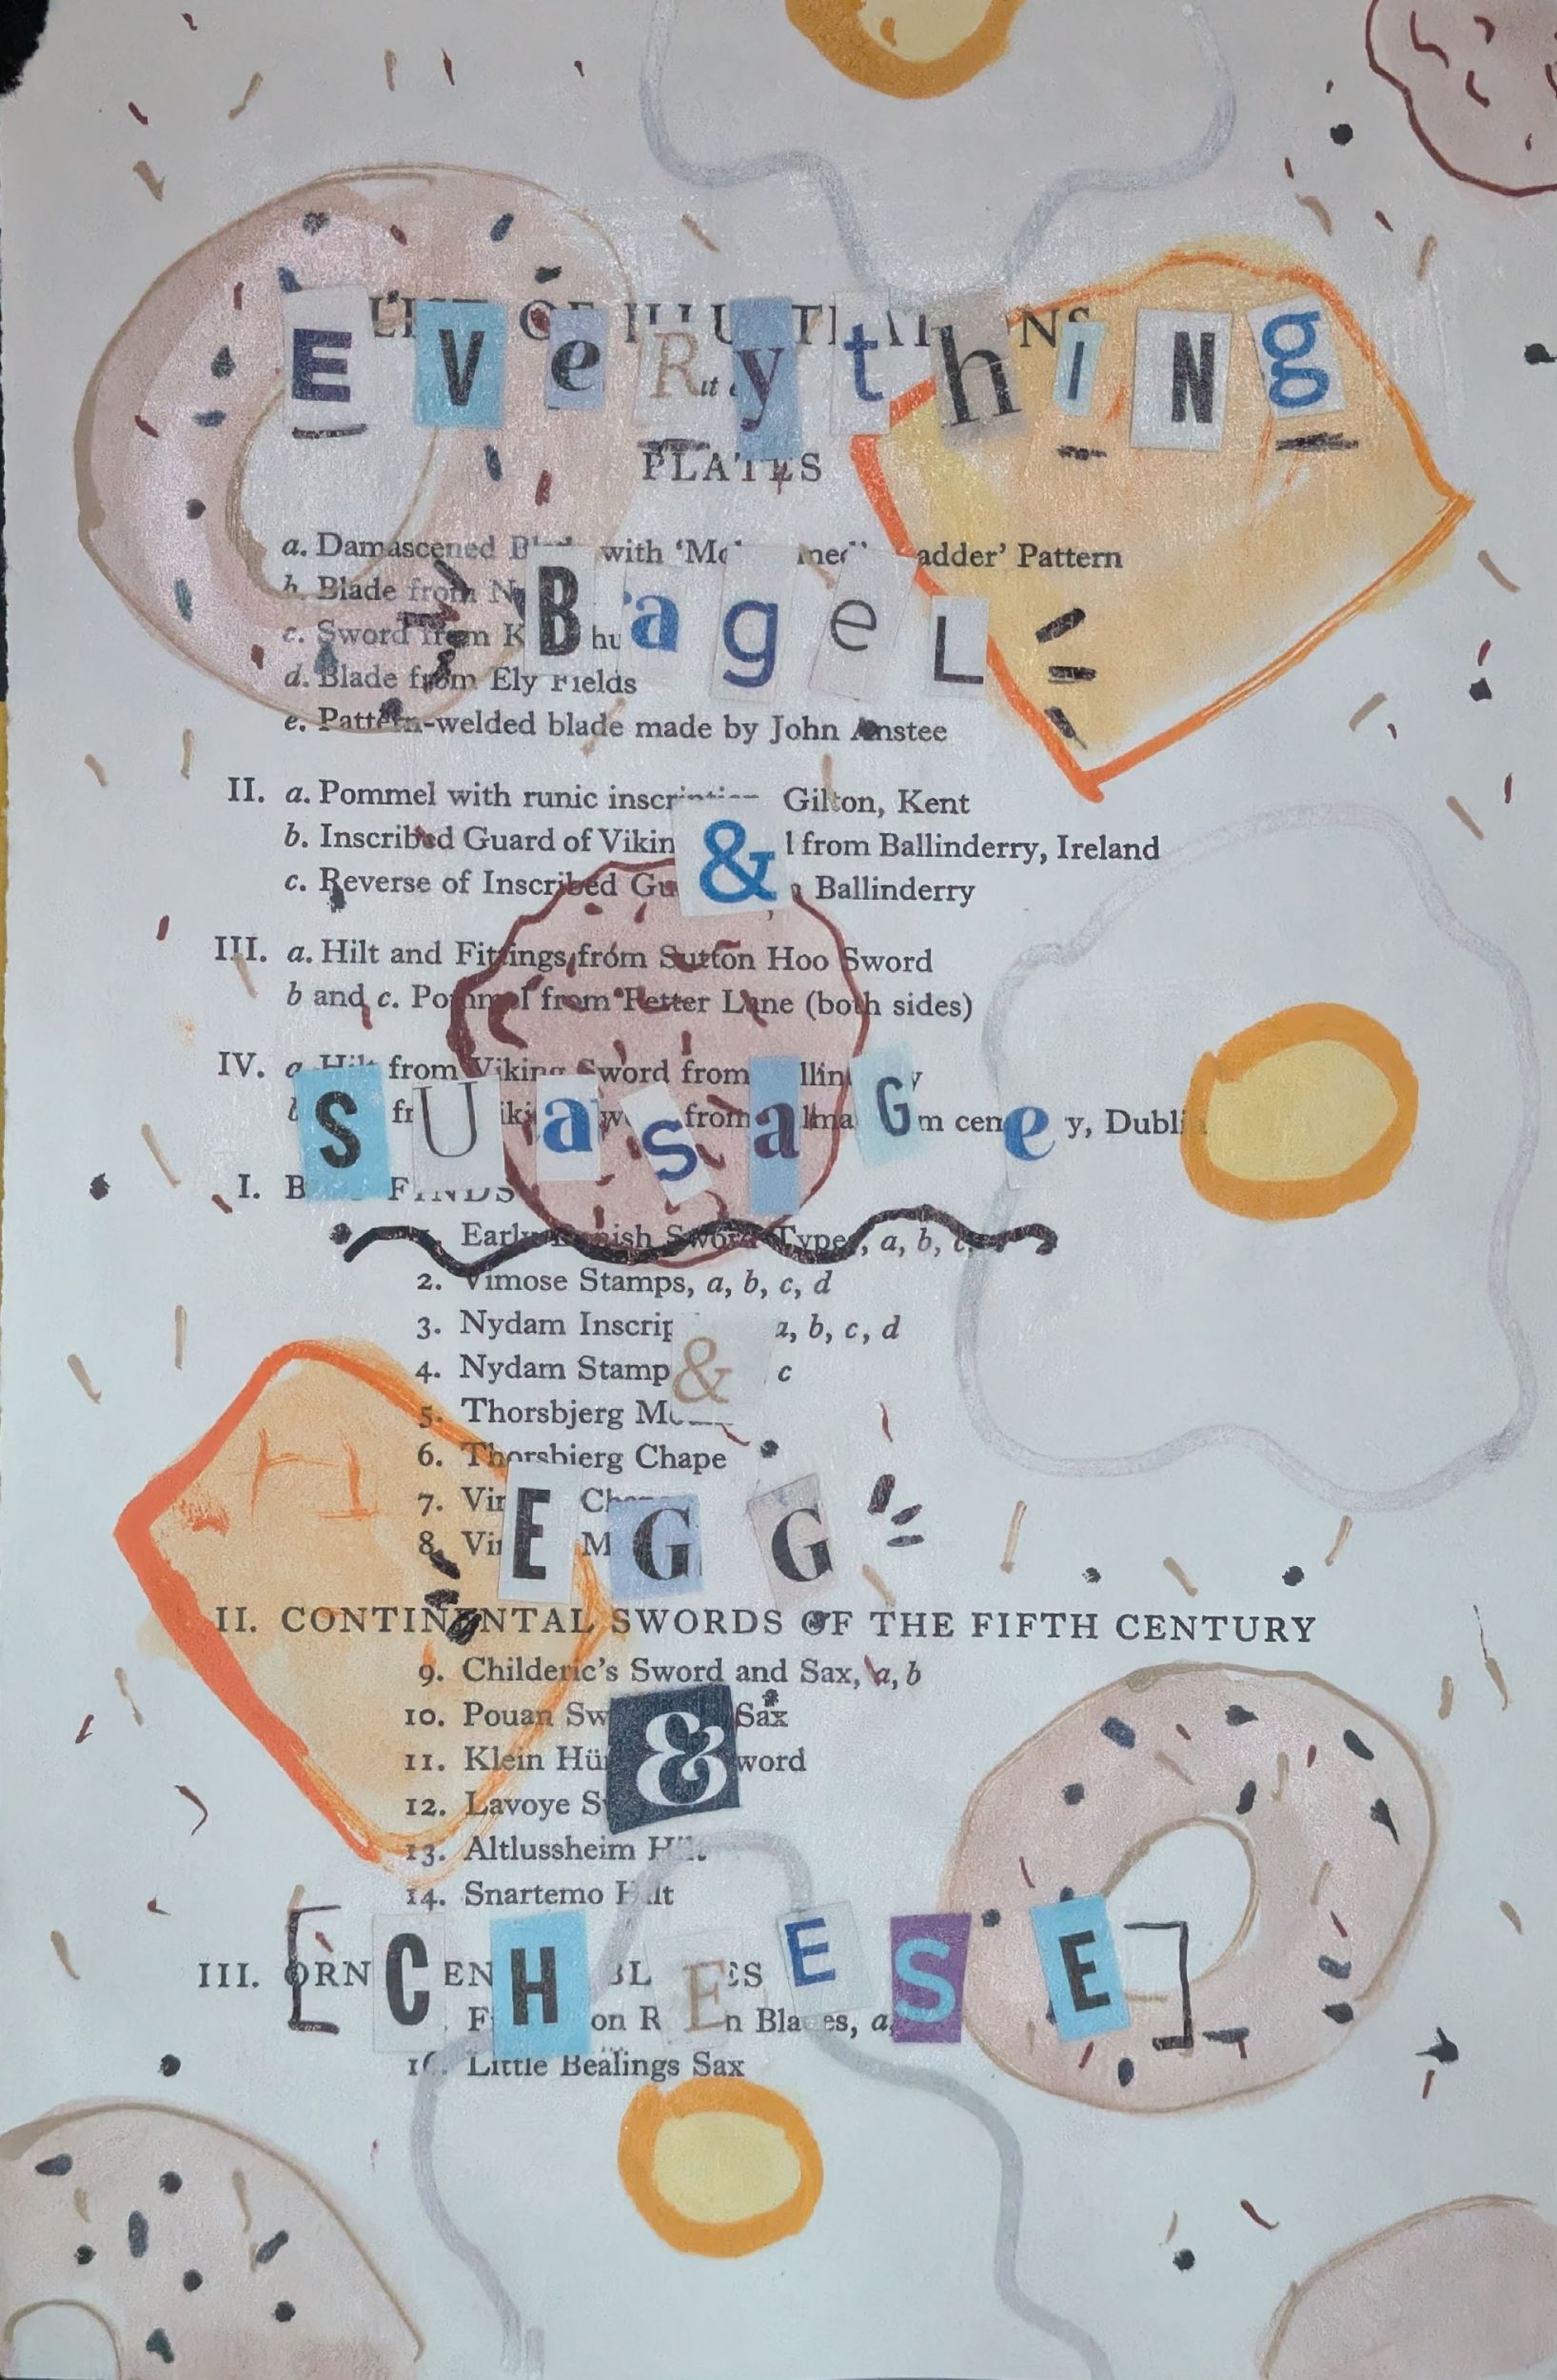 LIST OF ILLUSTRATIONS
EVeRythiNg
PLATES
a. Damascened with adder' Pattern
b. Blade from
BageL
c. Sword from K
d. Blade from Ely Fields
e. Pattern-welded blade made by John Anstee
II. a. Pommel with runic Gilton, Kent
&
b. Inscribed Guard of Vikin l from Ballinderry, Ireland
c. Reverse of Inscribed Gu Ballinderry
III. a. Hilt and Fittings from Sutton Hoo Sword
b and c. Pommel from Fetter Lane (both sides)
IV. a. Hilt from Viking Sword from
SUasaGe
b from y, Dubli
I. FINDS
Early Sword Types, a, b, c
2. Vimose Stamps, a, b, c, d
3. Nydam Inscrip a, b, c, d
&
4. Nydam Stamp c
5. Thorsbjerg
6. Thorsbjerg Chape
EGG
7. Vi
8. Vi M
II. CONTINENTAL SWORDS OF THE FIFTH CENTURY
9. Childeric's Sword and Sax, a, b
10. Pouan Sw Sax
&
11. Klein Hü word
12. Lavoye S
13. Altlussheim Hilt
14. Snartemo Hilt
[CHEESE]
III. ORN EN BL ES
F on R n Blades, a,
16. Little Bealings Sax